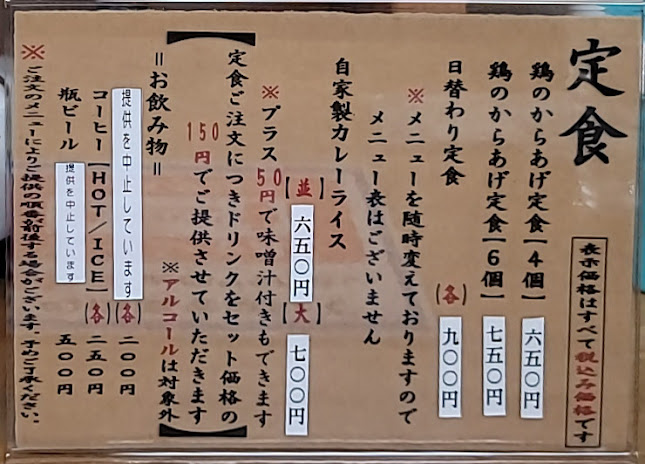 定食
表示価格はすべて税込み価格です
鶏のからあげ定食【4個】 六五〇円
鶏のからあげ定食【6個】 七五〇円
日替わり定食 (各) 九〇〇円
※メニューを随時変えておりますので
メニュー表はございません
自家製カレーライス
【並】 六五〇円 【大】 七〇〇円
※プラス50円で味噌汁付きもできます
定食ご注文につきドリンクをセット価格の
150円でご提供させていただきます
※アルコールは対象外
=お飲み物=
提供を中止しています (各) 二〇〇円
コーヒー【HOT/ICE】 (各) 二五〇円
瓶ビール 提供を中止しています 五〇〇円
※ご注文のメニューによりご提供の順番が前後する場合がございます。予めご了承ください。